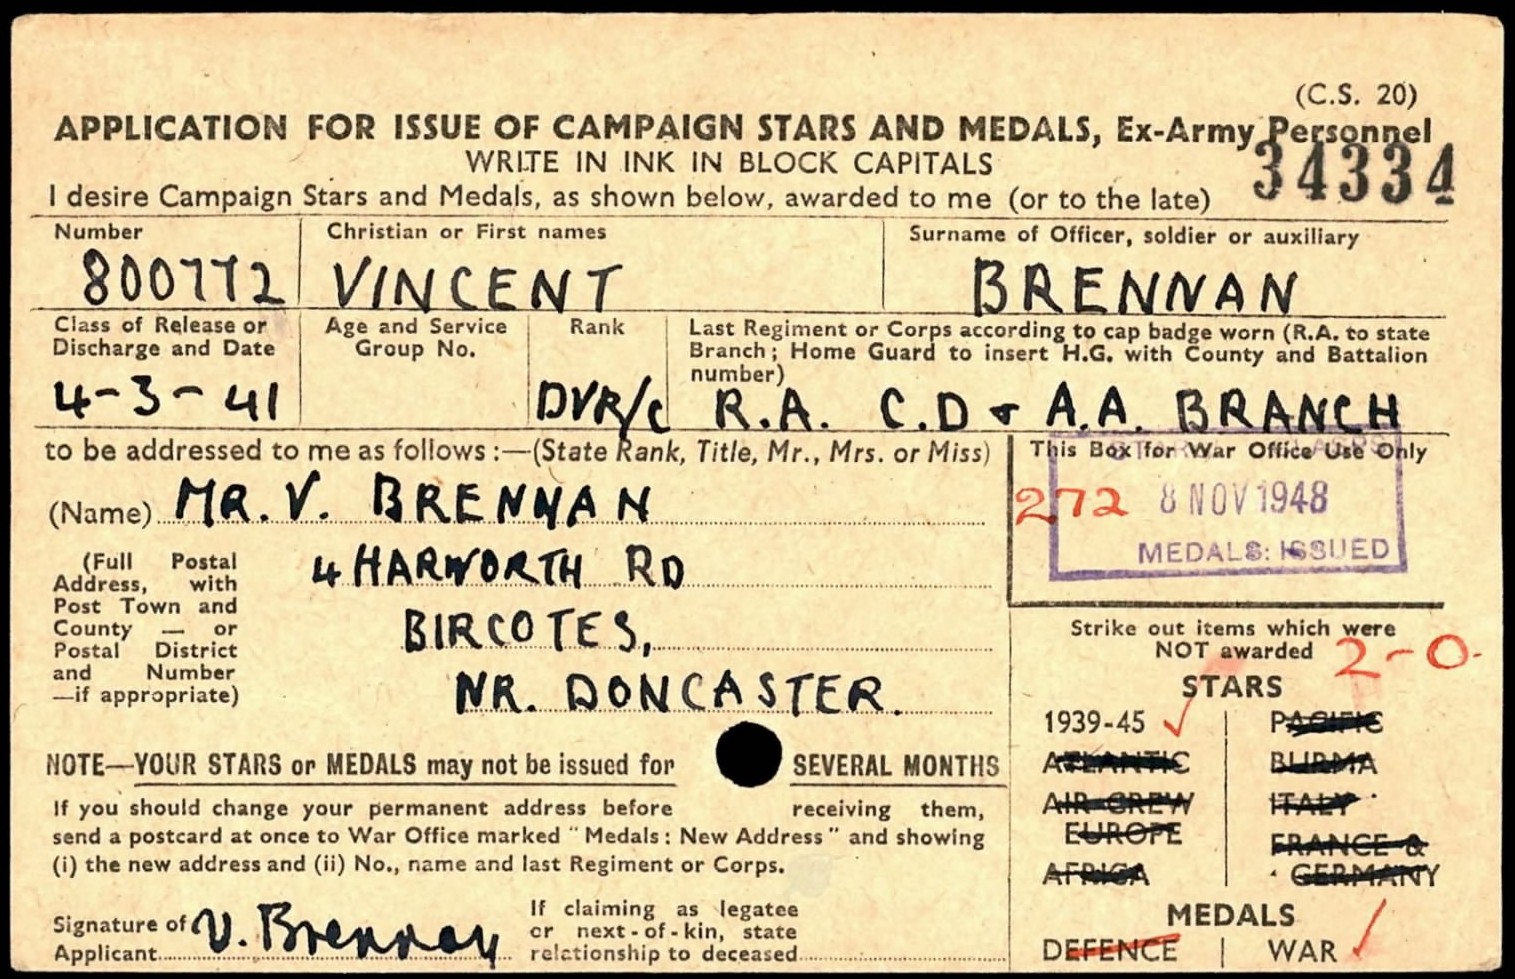 (C.S. 20)
APPLICATION FOR ISSUE OF CAMPAIGN STARS AND MEDALS, Ex-Army Personnel
WRITE IN INK IN BLOCK CAPITALS
34334
I desire Campaign Stars and Medals, as shown below, awarded to me (or to the late)
Number
Christian or First names
Surname of Officer, soldier or auxiliary
800772
VINCENT
BRENNAN
Class of Release or
Discharge and Date
Age and Service
Group No.
Rank
Last Regiment or Corps according to cap badge worn (R.A. to state
Branch; Home Guard to insert H.G. with County and Battalion
number)
4-3-41
DVR/C
R.A. C.D & A.A. BRANCH
to be addressed to me as follows :—(State Rank, Title, Mr., Mrs. or Miss)
(Name) MR. V. BRENNAN
(Full Postal
Address, with
Post Town and
County — or
Postal District
and Number
—if appropriate)
4 HARWORTH RD
BIRCOTES,
NR. DONCASTER.
This Box for War Office Use Only
272
8 NOV 1948
MEDALS: ISSUED
Strike out items which were
NOT awarded
2-0.
STARS
1939-45
PACIFIC
ATLANTIC
BURMA
AIR CREW
EUROPE
ITALY
FRANCE &
GERMANY
AFRICA
MEDALS
DEFENCE
WAR
NOTE—YOUR STARS or MEDALS may not be issued for SEVERAL MONTHS
If you should change your permanent address before receiving them,
send a postcard at once to War Office marked "Medals: New Address" and showing
(i) the new address and (ii) No., name and last Regiment or Corps.
Signature of
Applicant
V. Brennan
If claiming as legatee
or next-of-kin, state
relationship to deceased